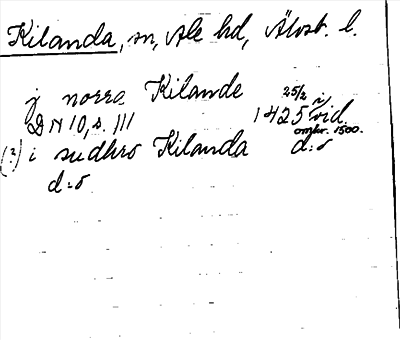 Kilanda, sn, Ale hd, Älvsb. l.
j norra Kilande 25/2 1425 i vid.
DN 10, s. 111 omkr. 1500.
(?) i sudhro Kilanda d:o
d:o